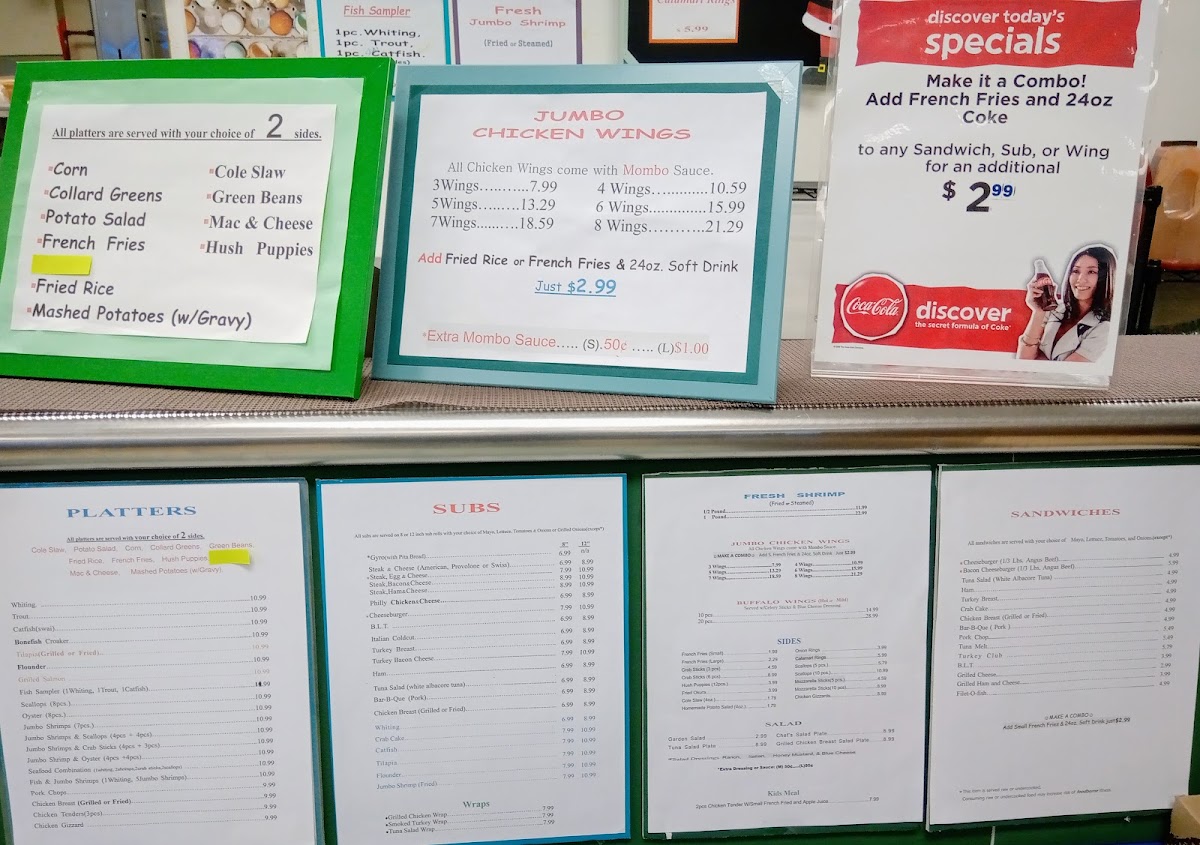 Fish Sampler
1pc. Whiting,
1pc. Trout,
1pc. Catfish.
Fresh
Jumbo Shrimp
(Fried or Steamed)
Calamari Rings
$ 5.99
All platters are served with your choice of 2 sides.
Corn
Collard Greens
Potato Salad
French Fries
Fried Rice
Mashed Potatoes (w/Gravy)
Cole Slaw
Green Beans
Mac & Cheese
Hush Puppies
JUMBO
CHICKEN WINGS
All Chicken Wings come with Mombo Sauce.
3Wings..........7.99 4 Wings.............10.59
5Wings.........13.29 6 Wings..............15.99
7Wings........18.59 8 Wings...........21.29
Add Fried Rice or French Fries & 24oz. Soft Drink
Just $2.99
*Extra Mombo Sauce..... (S).50¢ ..... (L)$1.00
discover today's
specials
Make it a Combo!
Add French Fries and 24oz
Coke
to any Sandwich, Sub, or Wing
for an additional
$ 2.99
Coca-Cola
discover
the secret formula of Coke
PLATTERS
All platters are served with your choice of 2 sides.
Cole Slaw, Potato Salad, Corn, Collard Greens, Green Beans,
Fried Rice, French Fries, Hush Puppies,
Mac & Cheese, Mashed Potatoes (w/Gravy),
Whiting 10.99
Trout 10.99
Catfish(swai) 10.99
Bonefish Croaker 10.99
Tilapia(Grilled or Fried) 10.99
Flounder 10.99
Grilled Salmon 10.99
Fish Sampler (1Whiting, 1Trout, 1Catfish)
Scallops (8pcs.) 10.99
Oyster (8pcs.) 10.99
Jumbo Shrimps (7pcs.) 10.99
Jumbo Shrimps & Scallops (4pcs + 4pcs) 10.99
Jumbo Shrimps & Crab Sticks (4pcs + 3pcs) 10.99
Jumbo Shrimp & Oyster (4pcs +4pcs) 10.99
Seafood Combination 10.99
Fish & Jumbo Shrimps (1Whiting, 5Jumbo Shrimps) 10.99
Pork Chops 9.99
Chicken Breast (Grilled or Fried) 9.99
Chicken Tenders(3pcs) 9.99
Chicken Gizzard 9.99
SUBS
8" 12"
*Gyros(with Pita Bread) 6.99
Steak & Cheese (American, Provolone or Swiss) 6.99 8.99
Steak, Egg & Cheese 7.99 10.99
Steak,Bacon&Cheese 8.99 10.99
Steak,Ham&Cheese 8.99 10.99
Philly Chicken&Cheese 6.99 8.99
Cheeseburger 7.99 10.99
B.L.T. 6.99 8.99
Italian Coldcut 6.99 8.99
Turkey Breast 6.99 8.99
Turkey Bacon Cheese 7.99 10.99
Ham 6.99 8.99
Tuna Salad (white albacore tuna) 6.99 8.99
Bar-B-Que (Pork) 6.99 8.99
Chicken Breast (Grilled or Fried) 6.99 8.99
Whiting 6.99 8.99
Crab Cake 7.99 10.99
Catfish 7.99 10.99
Tilapia 7.99 10.99
Flounder 7.99 10.99
Jumbo Shrimp (Fried) 7.99 10.99
Wraps
Grilled Chicken Wrap 7.99
Smoked Turkey Wrap 7.99
Tuna Salad Wrap 7.99
FRESH SHRIMP
(Fried or Steamed)
1/2 Pound
1 Pound
JUMBO CHICKEN WINGS
All Chicken Wings come with Mombo Sauce
3 Wings 7.99 4 Wings 10.59
5 Wings 13.29 6 Wings 15.99
7 Wings 18.59 8 Wings 21.29
BUFFALO WINGS (Hot or Mild)
Served w/Celery Sticks & Blue Cheese Dressing
10 pcs 14.99
20 pcs 28.99
SIDES
French Fries (Small)
French Fries (Large)
Crab Sticks (3 pcs)
Crab Sticks (6 pcs)
Hush Puppies (12pcs.)
Homemade Potato Salad (4oz.)
Onion Rings
Calamari Rings
Scallops (5 pcs.)
Scallops (10 pcs.)
Mozzarella Sticks(5 pcs.)
Chicken Gizzards
SALAD
Garden Salad 2.99 Chef's Salad Plate
Tuna Salad Plate 8.99 Grilled Chicken Breast Salad Plate
Kids Meal
2pcs Chicken Tender W/Small French Fried and Apple Juice 7.99
SANDWICHES
All sandwiches are served with your choice of Mayo, Lettuce, Tomatoes, and Onions(except*)
Cheeseburger (1/3 Lbs, Angus Beef) 4.99
Bacon Cheeseburger (1/3 Lbs, Angus Beef)
Tuna Salad (White Albacore Tuna) 4.99
Ham 4.99
Turkey Breast 4.99
Crab Cake 4.99
Chicken Breast (Grilled or Fried) 4.99
Bar-B-Que ( Pork ) 4.99
Pork Chop
Tuna Melt
Turkey Club
B.L.T.
Grilled Cheese
Grilled Ham and Cheese
Filet-O-fish 4.99
MAKE A COMBO
Add Small French Fries & 24oz. Soft Drink just$2.99